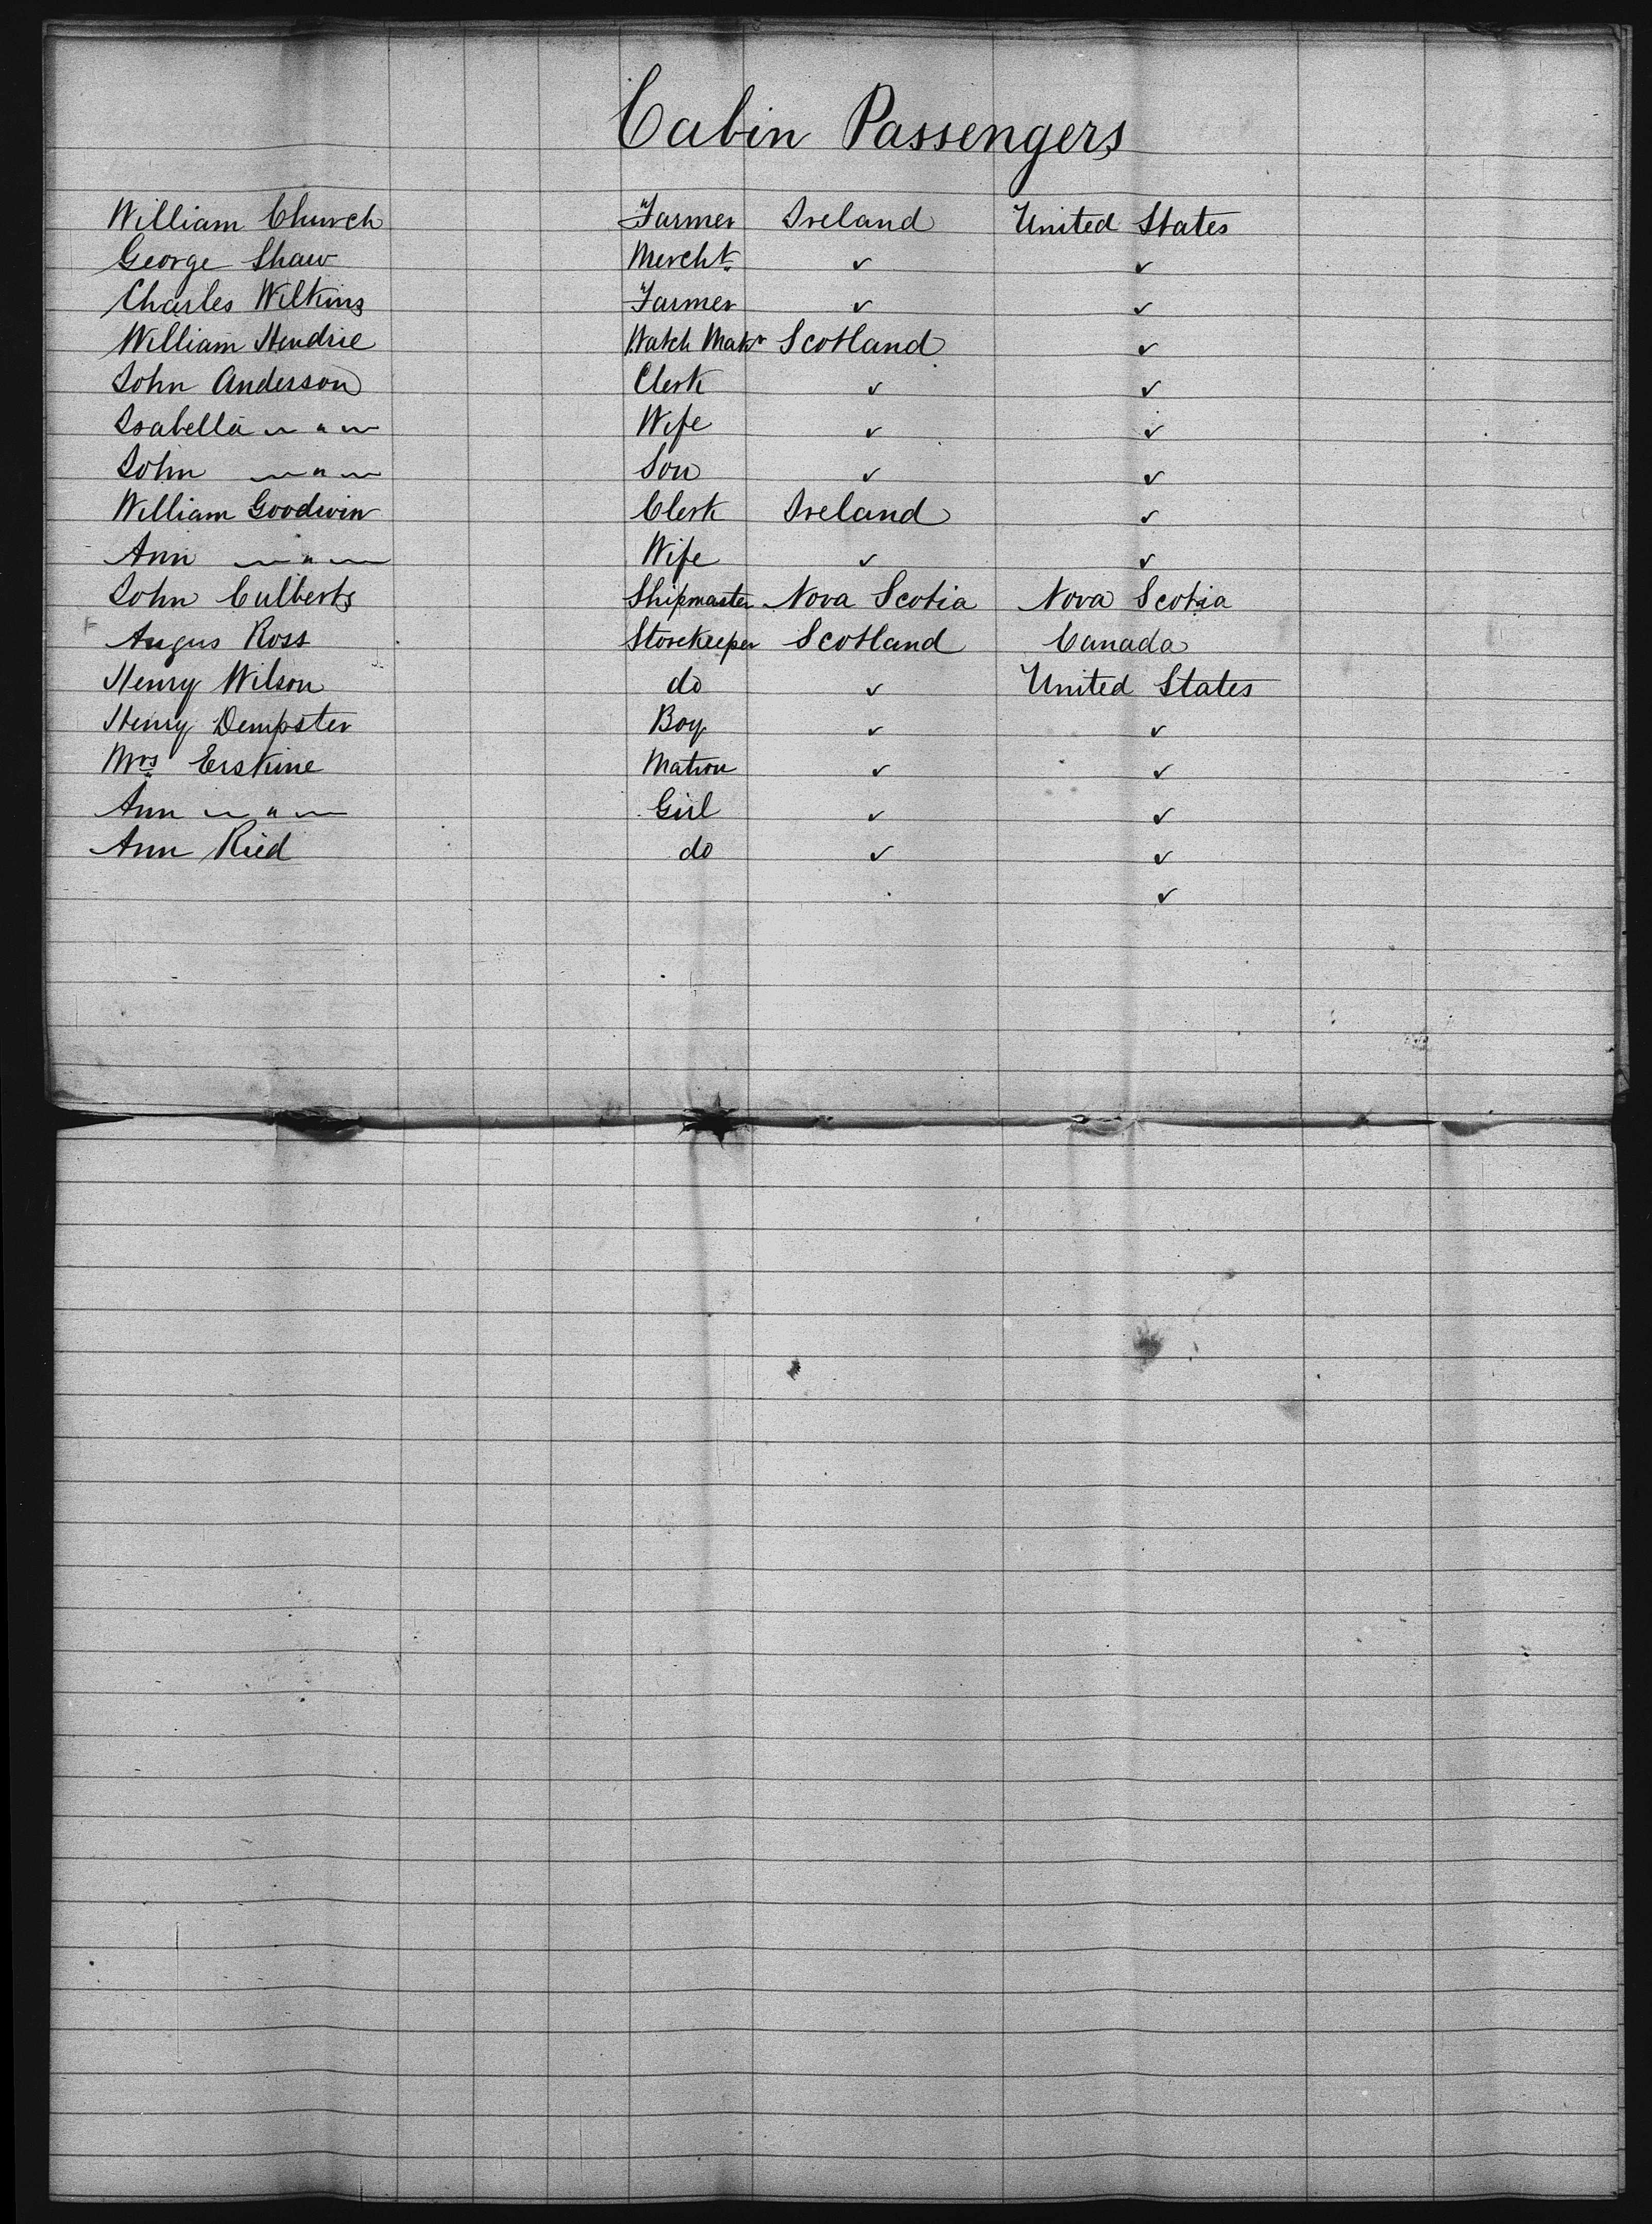 Cabin Passengers
William Church Farmer Ireland United States
George Shaw Mercht ✓ ✓
Charles Wilkins Farmer ✓ ✓
William Hendrie Watch Makr Scotland ✓
John Anderson Clerk ✓ ✓
Isabella — " — Wife ✓ ✓
John — " — Son ✓ ✓
William Goodwin Clerk Ireland ✓
Ann — " — Wife ✓ ✓
John Culberts Shipmaster Nova Scotia Nova Scotia
Angus Ross Storekeeper Scotland Canada
Henry Wilson do ✓ United States
Henry Dempster Boy ✓ ✓
Mrs Erskine Matron ✓ ✓
Ann — " — Girl ✓ ✓
Ann Ried do ✓ ✓
✓